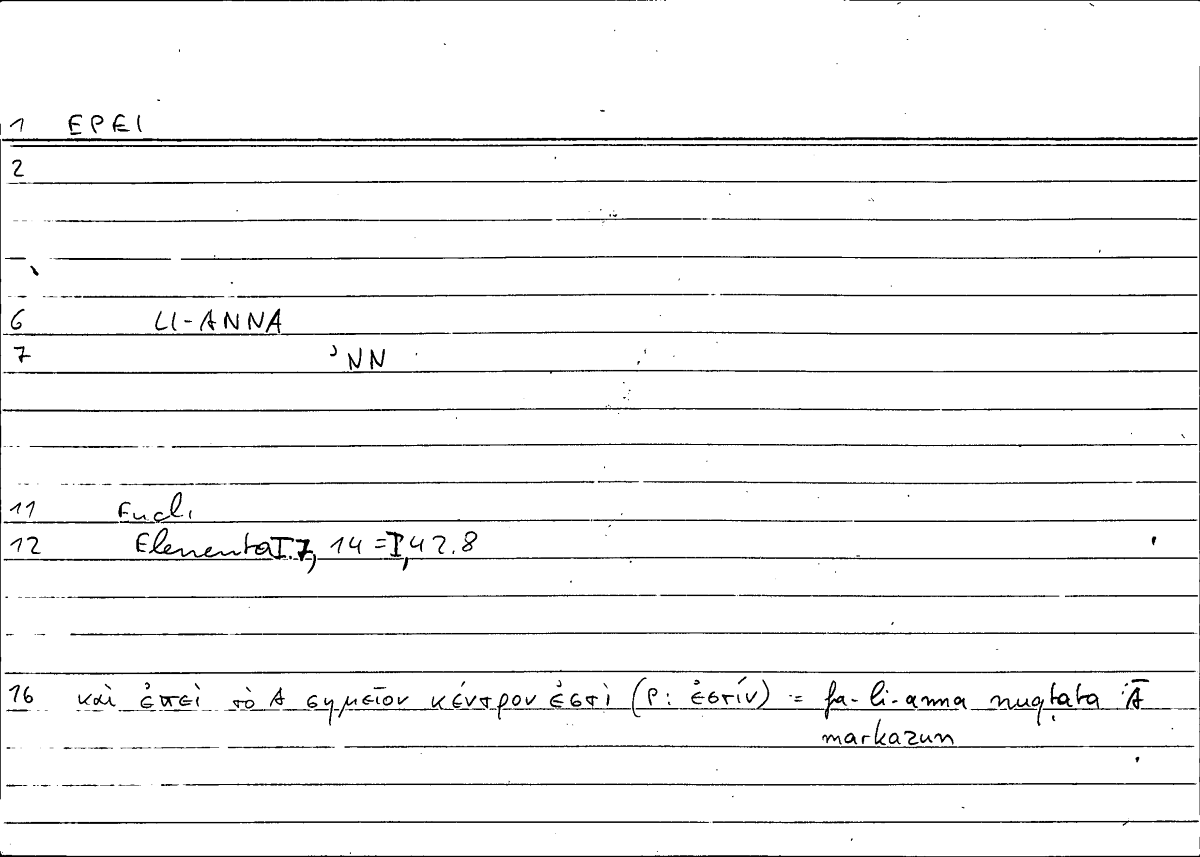 1 EPEI
2
6 LI-ANNA
7 ʾNN
11 Eucl.
12 Elementa I.7, 14 = I, 42.8
16 καὶ ἐπεὶ τὸ A σημεῖον κέντρον ἐστὶ (P: ἐστίν) = fa-li-anna nuqṭata Ā
markazun